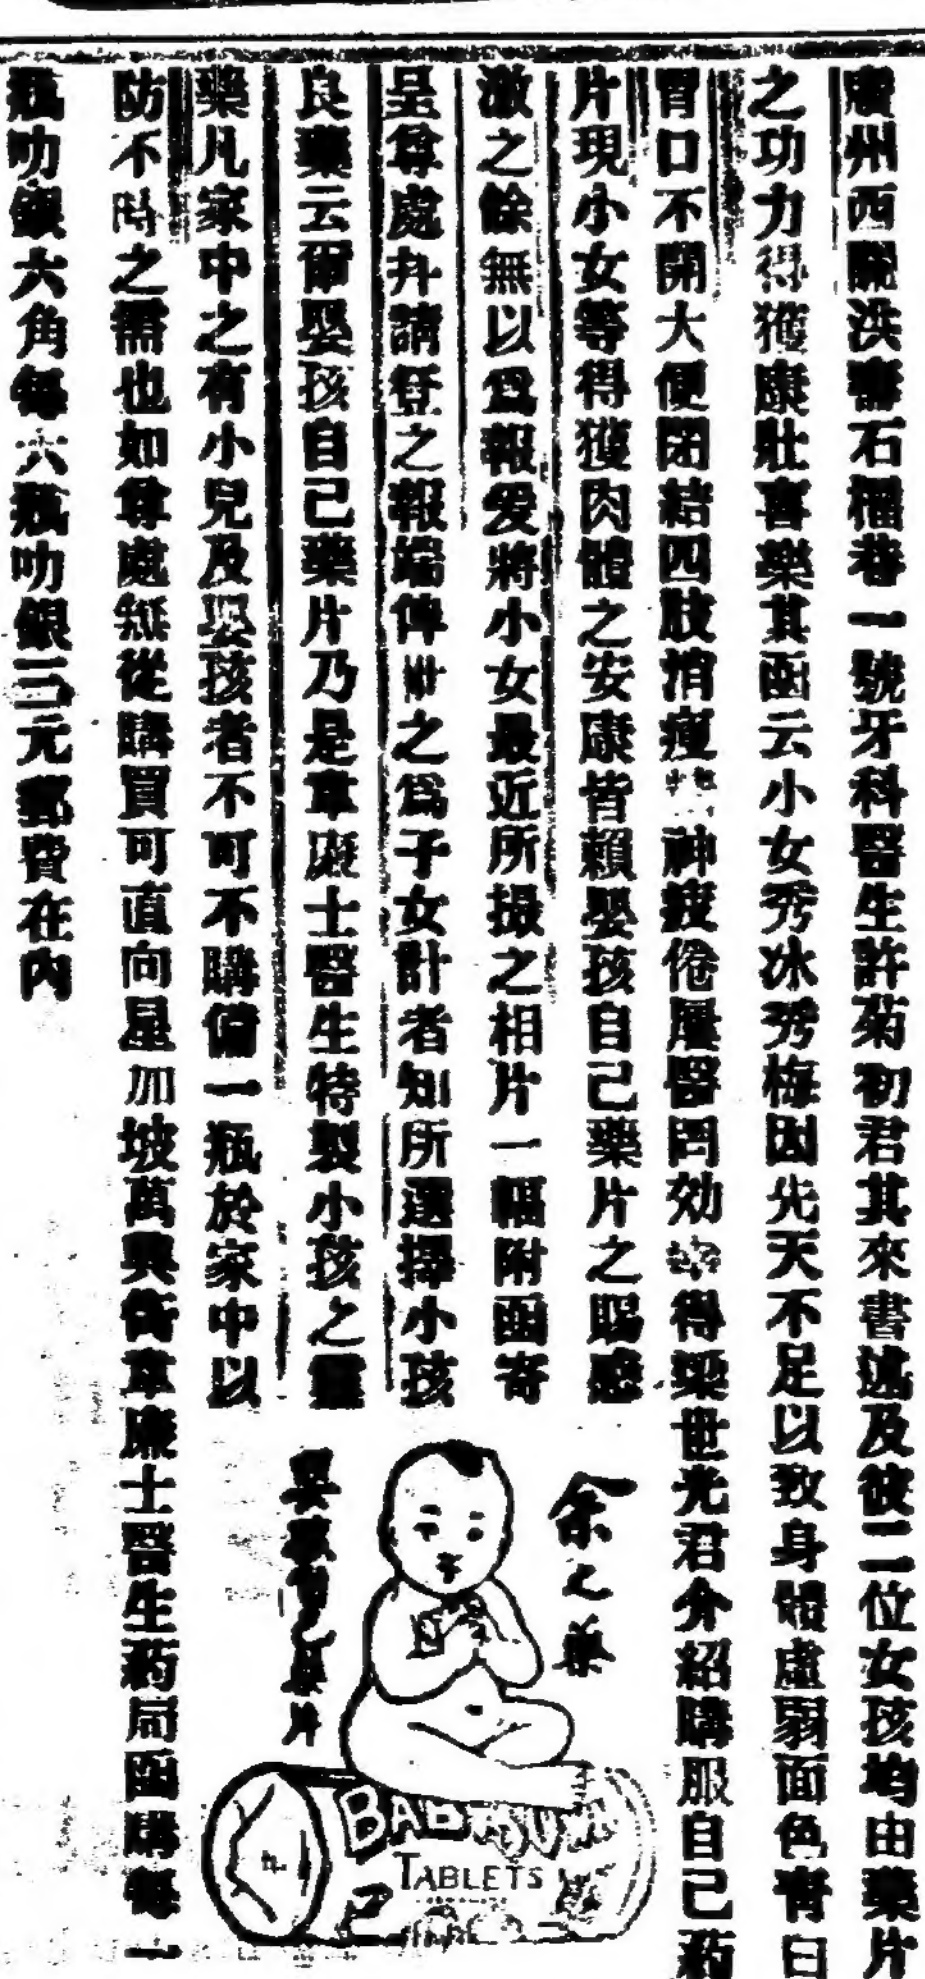 廣州西關洪壽石橊巷一號牙科醫生許菊初君其來書述及彼二位女孩均由藥片
之功力得獲康壯喜樂其函云小女秀冰秀梅因先天不足以致身體虛弱面色青白
胃口不開大便閉結四肢消瘦神疲倦屢醫罔効得梁世光君介紹購服自己葯
片現小女等得獲肉體之安康皆賴嬰孩自己藥片之賜感
激之餘無以爲報爰將小女最近所撮之相片一幅附函寄
呈尊處幷請登之報端俾世之爲子女計者知所選擇小孩
良藥云爾嬰孩自己藥片乃是韋廉士醫生特製小孩之靈
藥凡家中之有小兒及嬰孩者不可不購備一瓶於家中以
防不時之需也如尊處無從購買可直向星加坡萬興街韋廉士醫生葯局函購每一
瓶叻銀六角每六瓶叻銀三元郵費在內
余之藥
嬰孩自己藥片
BABY'S OWN
TABLETS